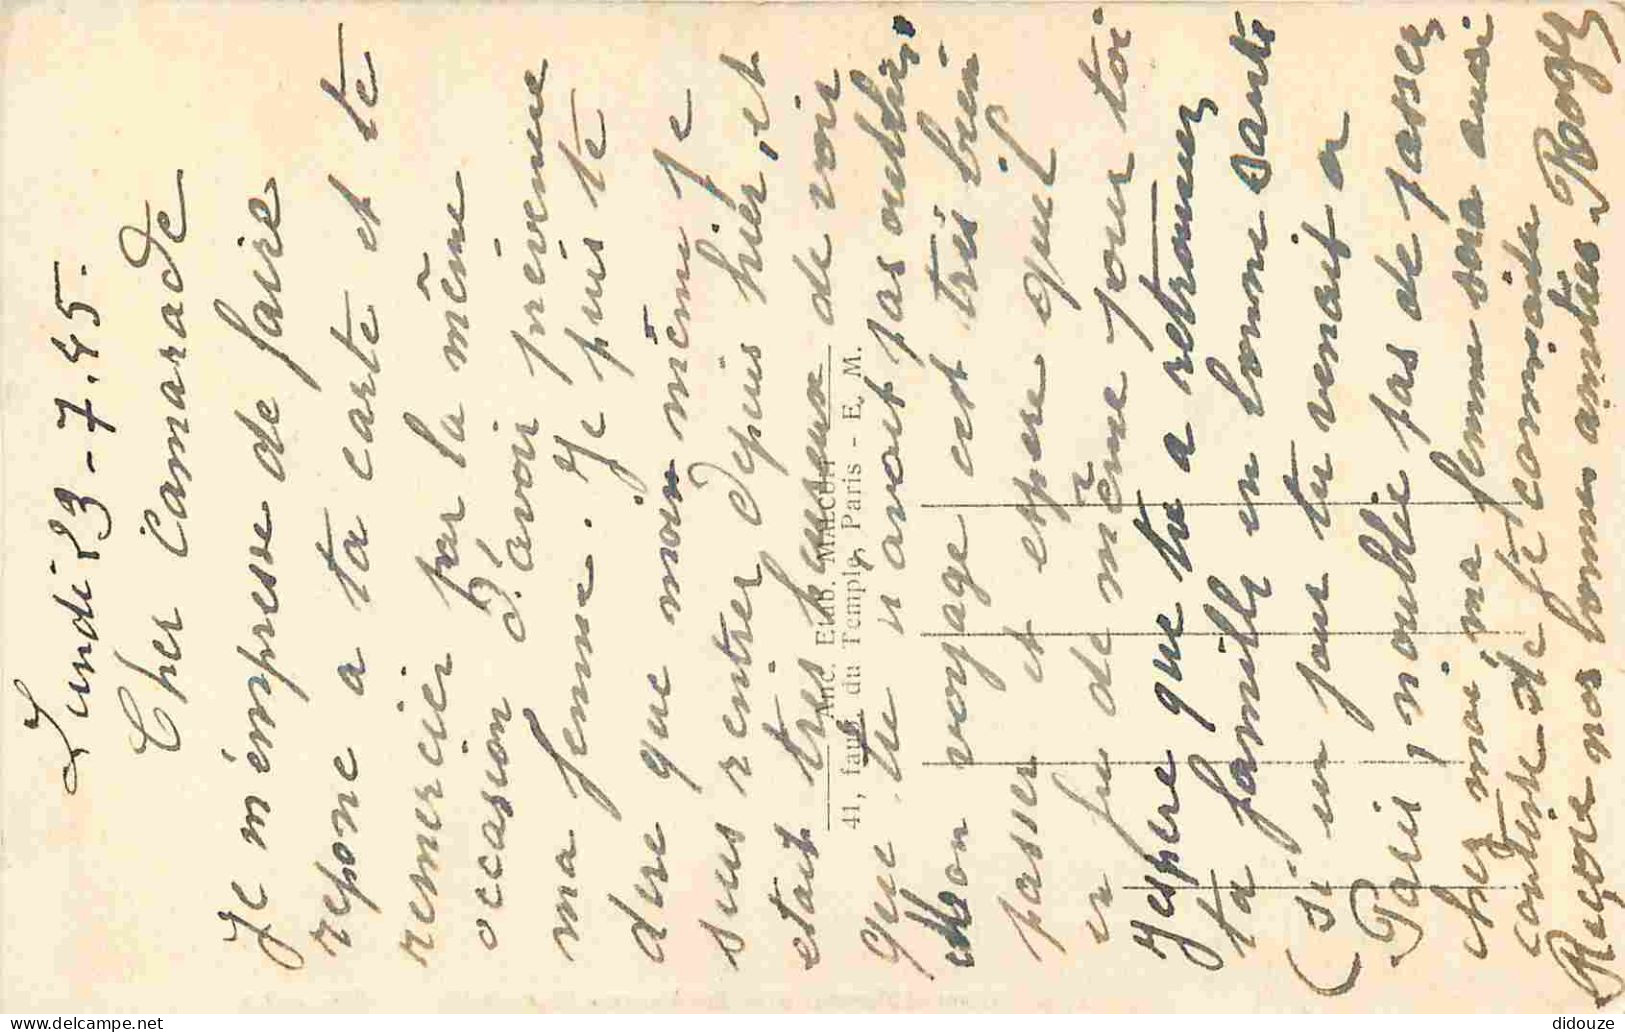 Lundi 23-7.45.
Cher Camarade
Je m'empresse de faire
repone a ta carte et te
remercier par la même
occasion d'avoir prévenue
ma femme. Je puis te
dire que moi même je
suis rentrer depuis hier, et
etait tres heureux de voir
que tu n'avait pas oublier
Mon voyage cest tres bien
passer et espere quil
en fu de même pour toi
Jespere que tu a retrouver
ta famille en bonne sante
(si un jour tu venait a
Paris n'oublie pas de passer
chez moi, ma femme sera aussi
contente de te connaitre
Reçoie nos bonnes amitiés Roger
Anc. Etab. MALCUIT
41, faub. du Temple, Paris - E. M.
didouze